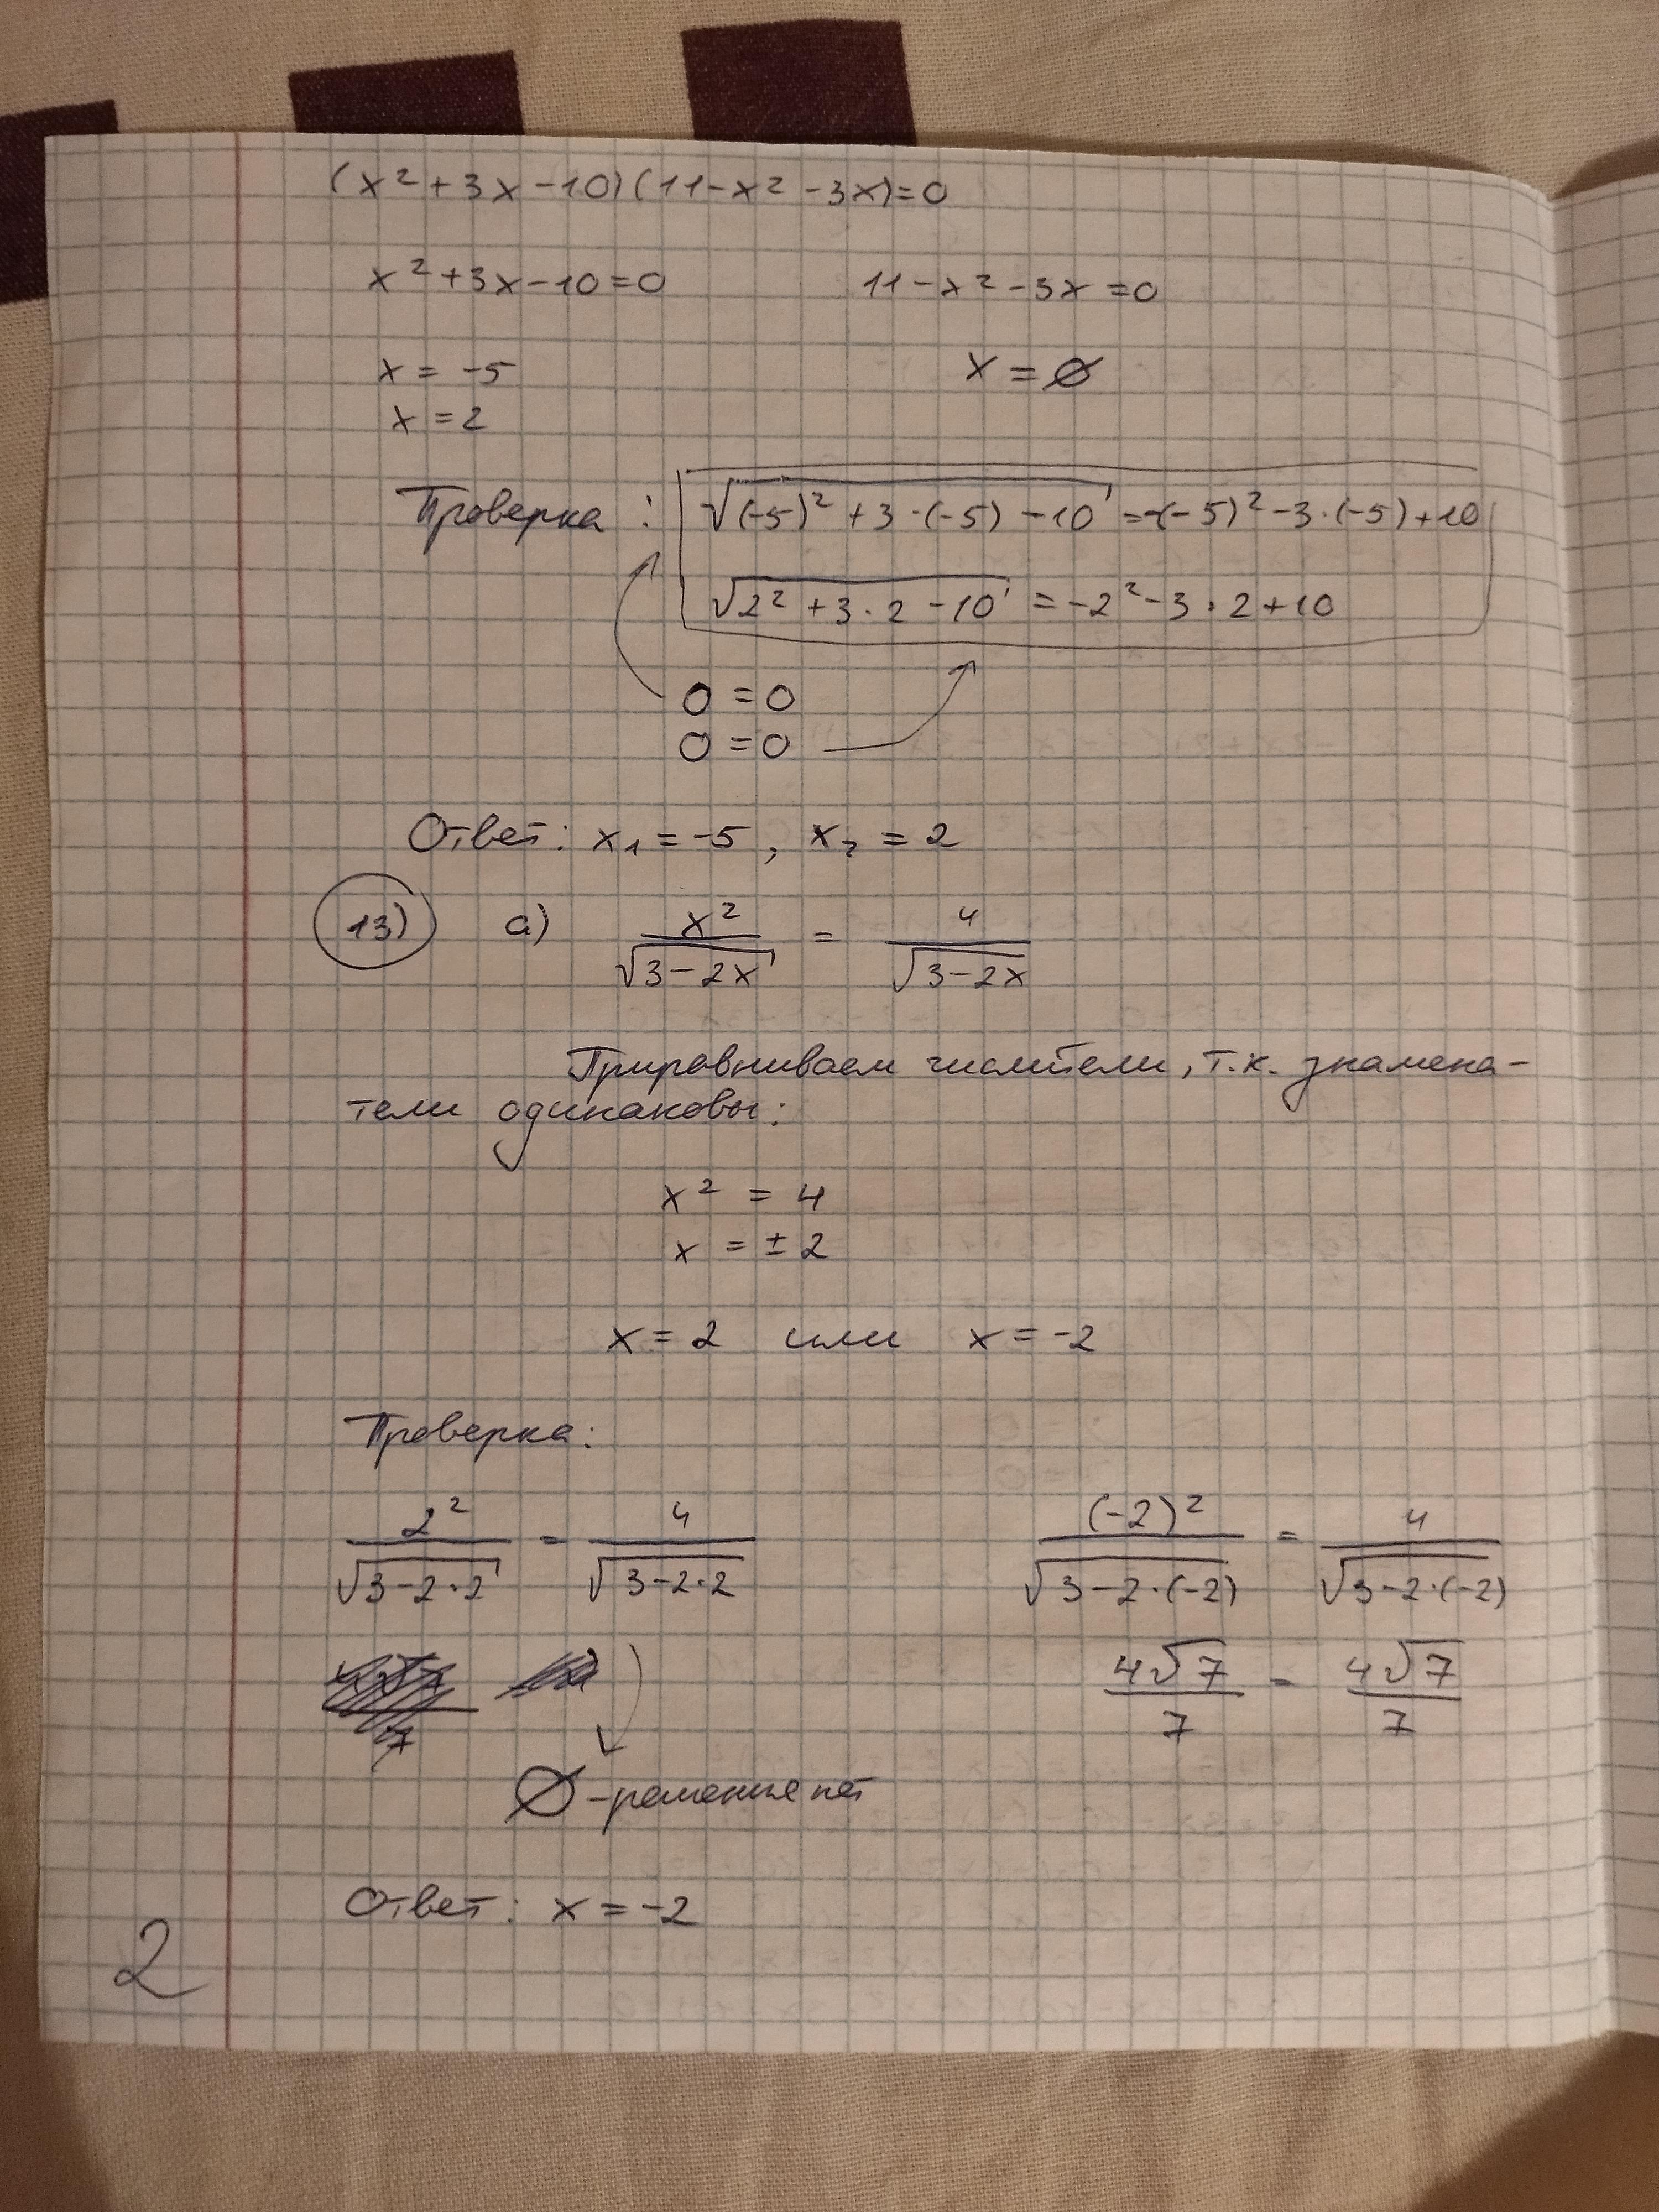 (x² + 3x - 10)(11 - x² - 3x) = 0
x² + 3x - 10 = 0 11 - x² - 3x = 0
x = -5 x = ∅
x = 2
Проверка: √((-5)² + 3·(-5) - 10) = -(-5)² - 3·(-5) + 10
√(2² + 3·2 - 10) = -2² - 3·2 + 10
0 = 0
0 = 0
Ответ: x₁ = -5, x₂ = 2
13) а) x²/√(3-2x) = 4/√(3-2x)
Приравниваем числители, т.к. знамена-
тели одинаковы:
x² = 4
x = ± 2
x = 2 или x = -2
Проверка:
2²/√(3-2·2) = 4/√(3-2·2) (-2)²/√(3-2·(-2)) = 4/√(3-2·(-2))
4√7/7 = 4√7/7
∅ - решение нет
Ответ: x = -2
2